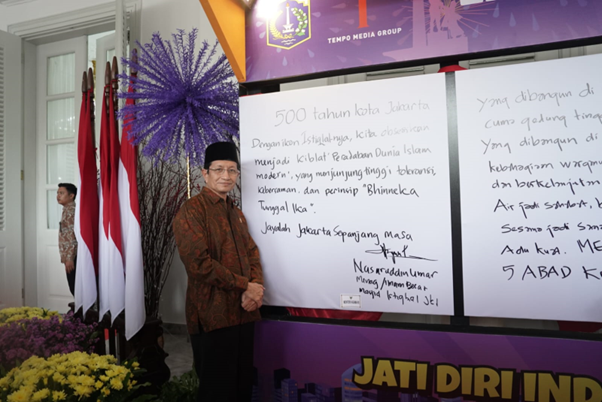 TEMPO MEDIA GROUP
500 tahun kota Jakarta
Dengan ikon Istiqlal-nya, kita
menjadi kiblat Peradaban Dunia Islam
modern, yang menjunjung tinggi toleransi,
keberagaman, dan perinsip "Bhinneka
Tunggal Ika".
Jayalah Jakarta Sepanjang Masa
Nasaruddin Umar
Imam Besar
Masjid Istiqlal Jkt
Yang dibangun di
cuma gedung ting
Yang dibangun di
warga
dan
Air jadi
jadi
Adu kuat. ME
5 ABAD K
JATI DIRI IND